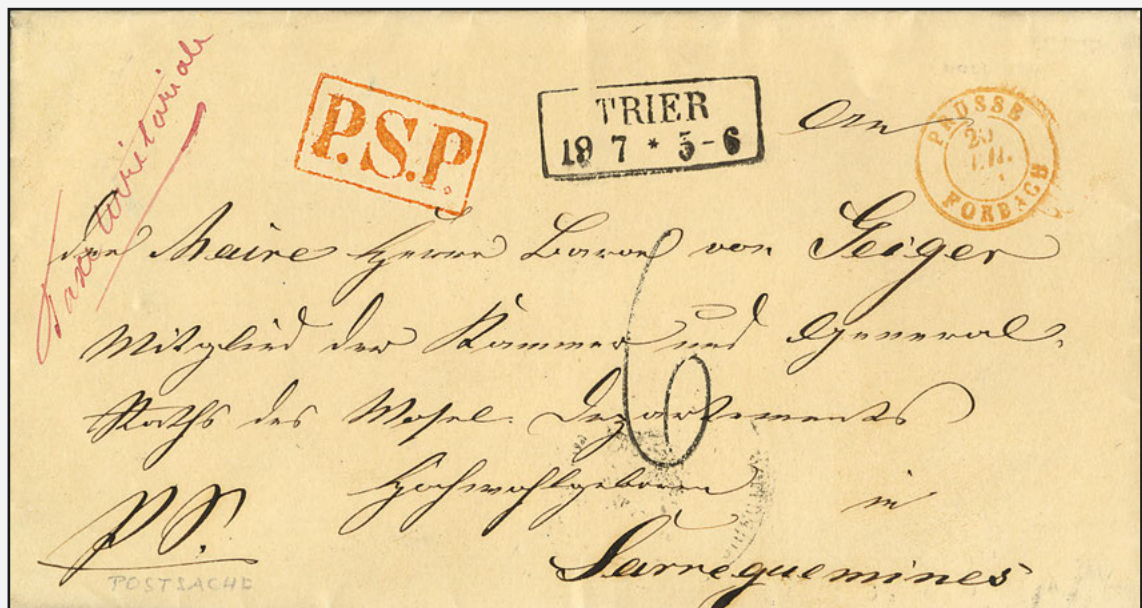 Taxe territoriale
P.S.P.
TRIER
19 7 * 5-6
An
PRUSSE
20
FORBACH
den Maire Herrn Baron von Geiger
Mitglied der Kammer und General-
Raths des Mosel-Departements
Hochwohlgeboren in
P S.
6
Sarreguemines
POSTSACHE